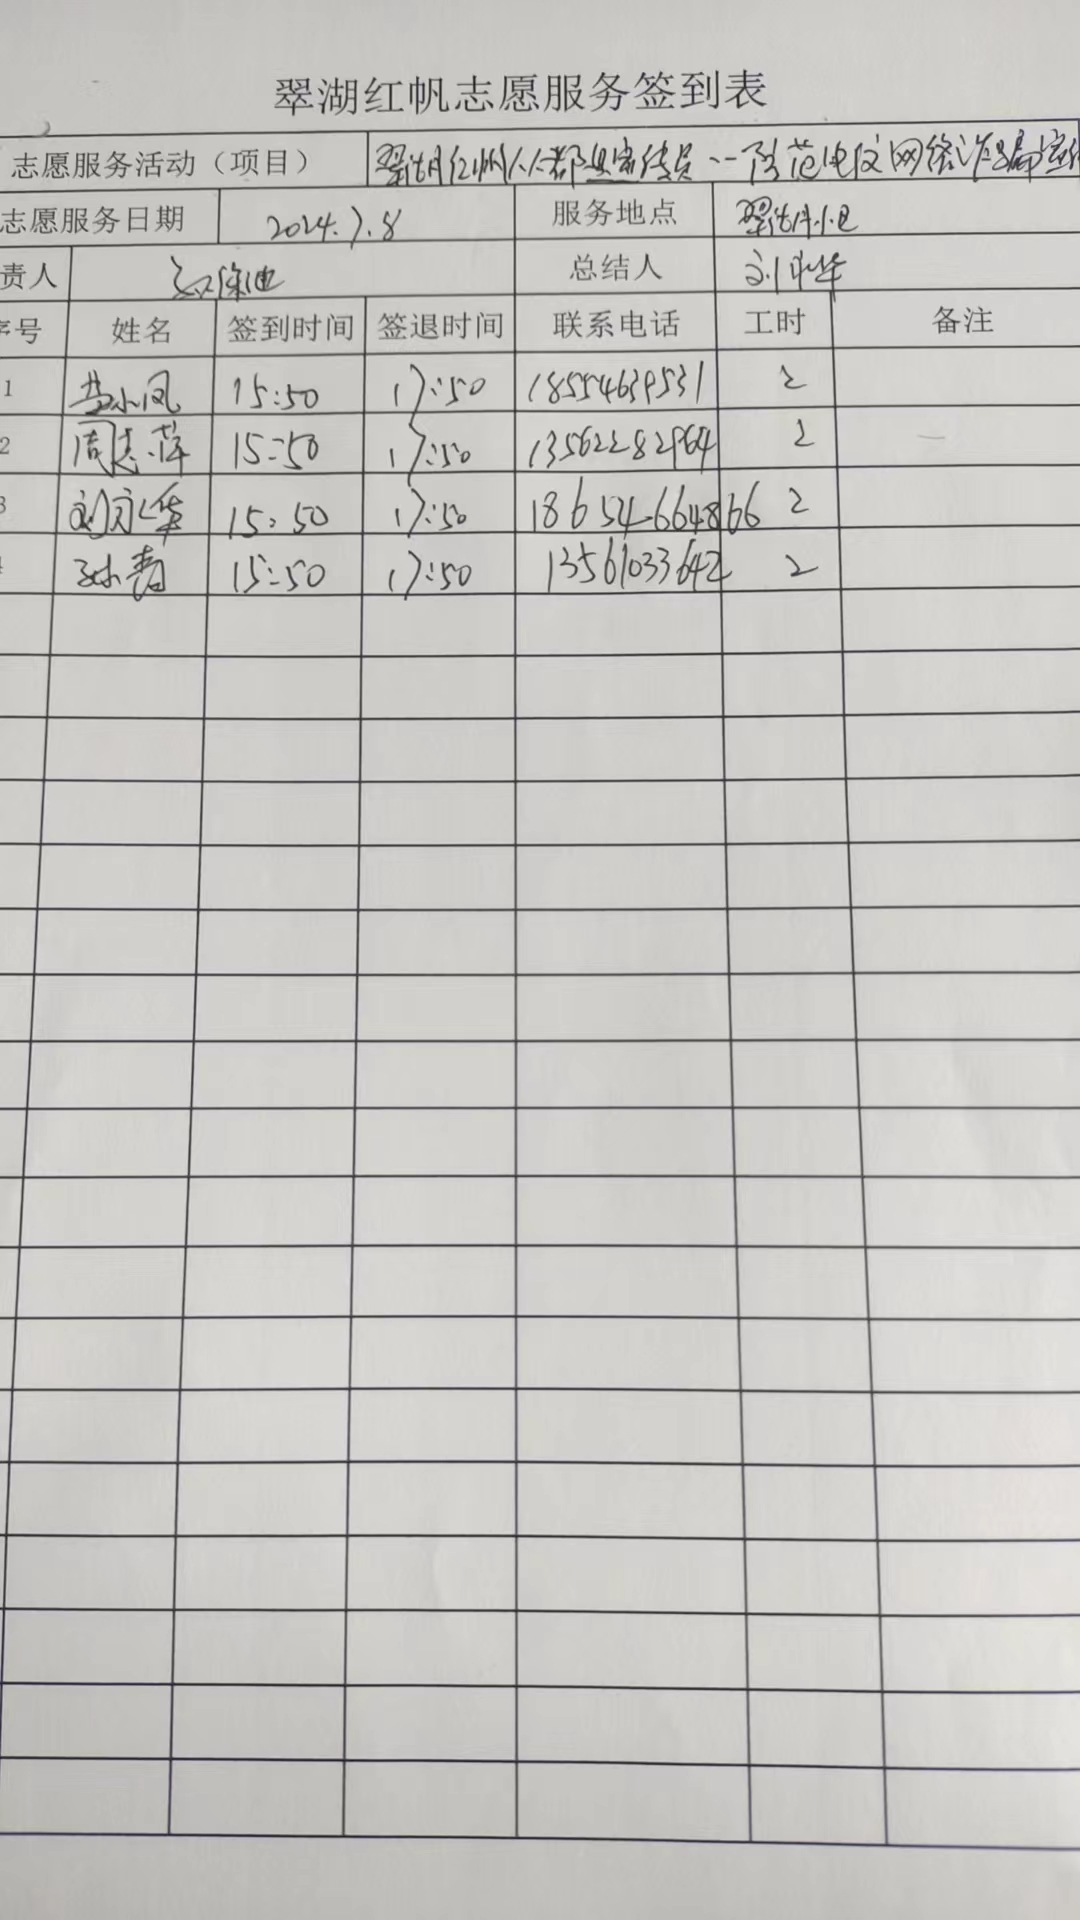 翠湖红帆志愿服务签到表
志愿服务活动（项目） 翠湖红帆人人都是宣传员、--防范电信网络诈骗宣传
志愿服务日期 2024.7.8 服务地点 翠湖小区
责人 总结人 刘永华
序号 姓名 签到时间 签退时间 联系电话 工时 备注
1 小凤 15:50 17:50 18554639531 2
2 周志萍 15:50 17:50 13562282964 2
3 刘永华 15:50 17:50 18654664866 2
孙青 15:50 17:50 13561033642 2